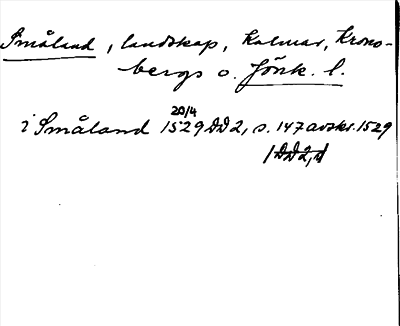 Småland, landskap, Kalmar, Krono-
bergs o. Jönk. l.
20/4
i Småland 1529 DD 2, s. 147 avskr. 1529